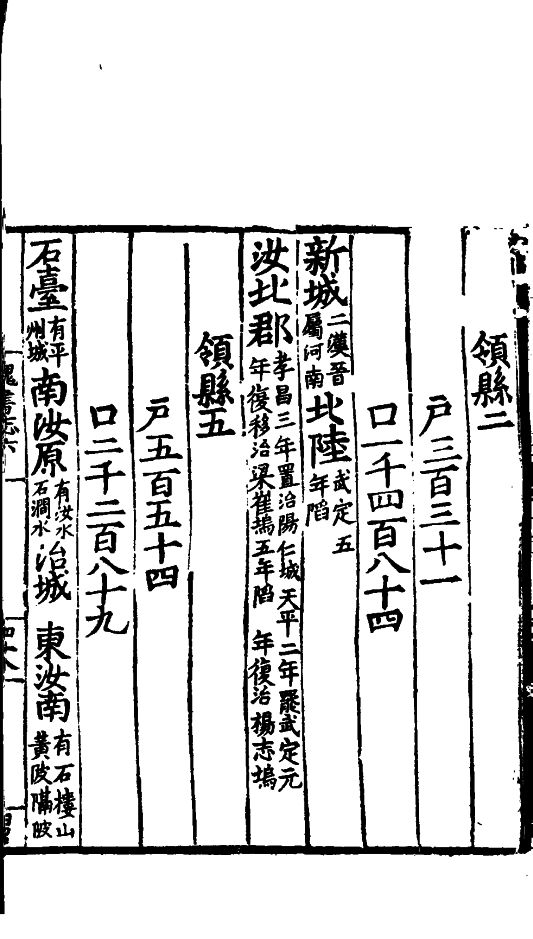 領縣二
戶三百三十一
口一千四百八十四
新城二漢晉屬河南北陸武定五年陷
汝北郡孝昌三年置治陽仁城天平二年罷武定元年復移治梁崔塢五年陷 年復治楊志塢
領縣五
戶五百五十四
口二千二百八十九
石臺有平州城南汝原有汝水石澗水治城 東汝南有石樓山黃陂陂
魏書志六